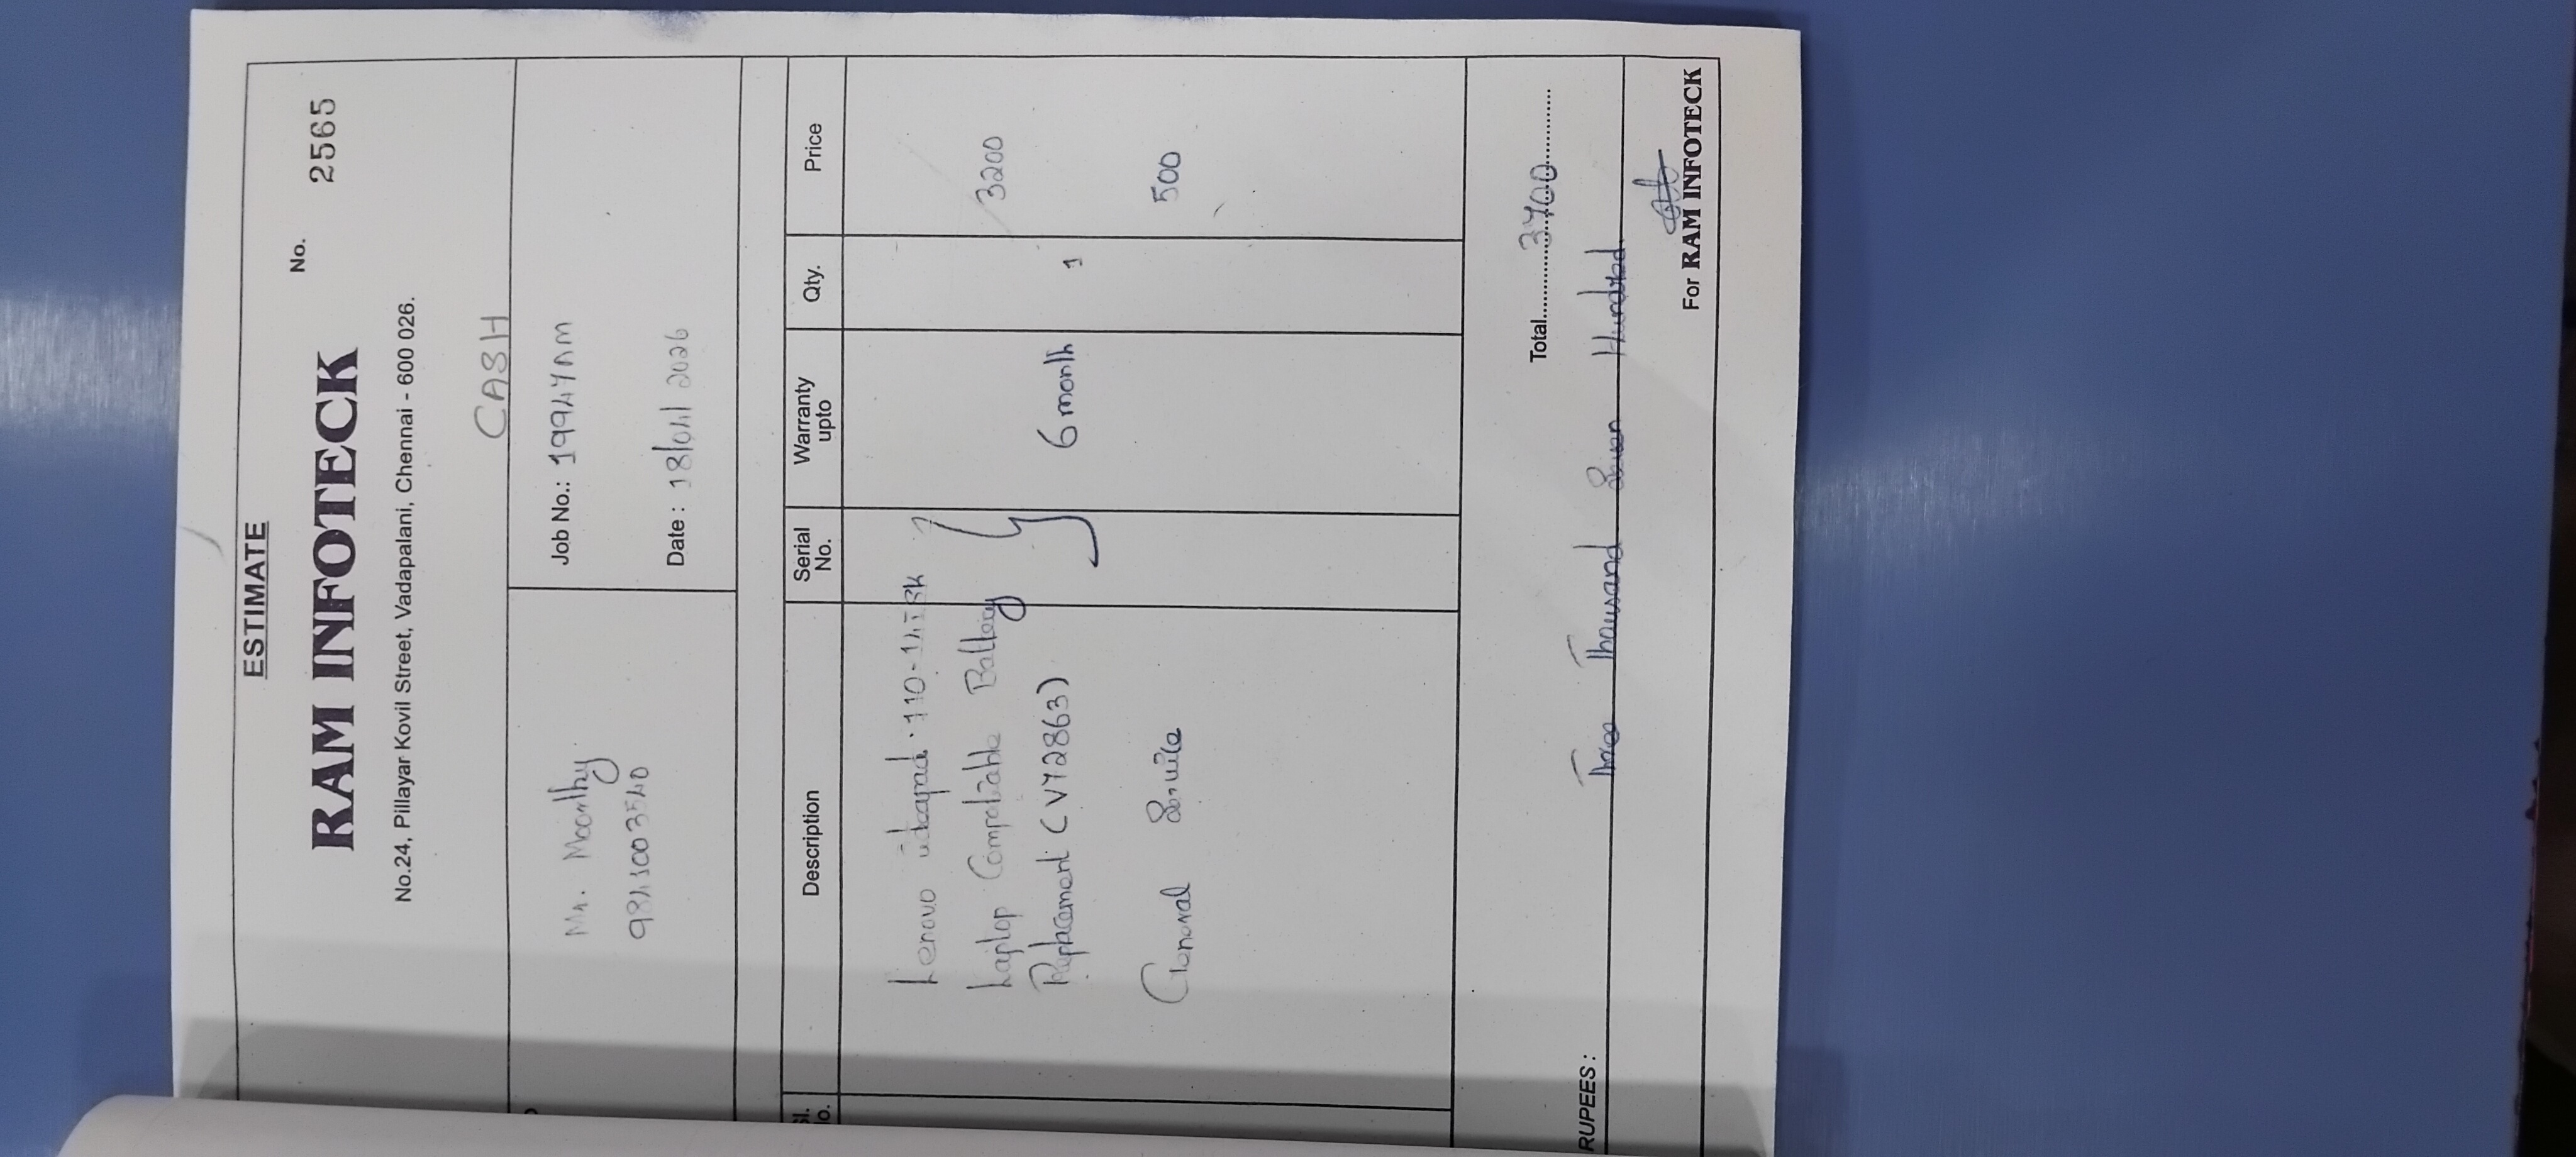 ESTIMATE
RAM INFOTECK
No. 2565
No.24, Pillayar Kovil Street, Vadapalani, Chennai - 600 026.
CASH
Mr. Moorthy
9841003540
Job No.:
Date : 18/01/2026
Description Serial No. Warranty upto Qty. Price
Lenovo ideapad 110-14ISK
Laptop Compatable Battery 3200
Replacement (VY2863) 6 month 1
General Service 500
Total 3700
RUPEES : Three Thousand Seven Hundred
For RAM INFOTECK